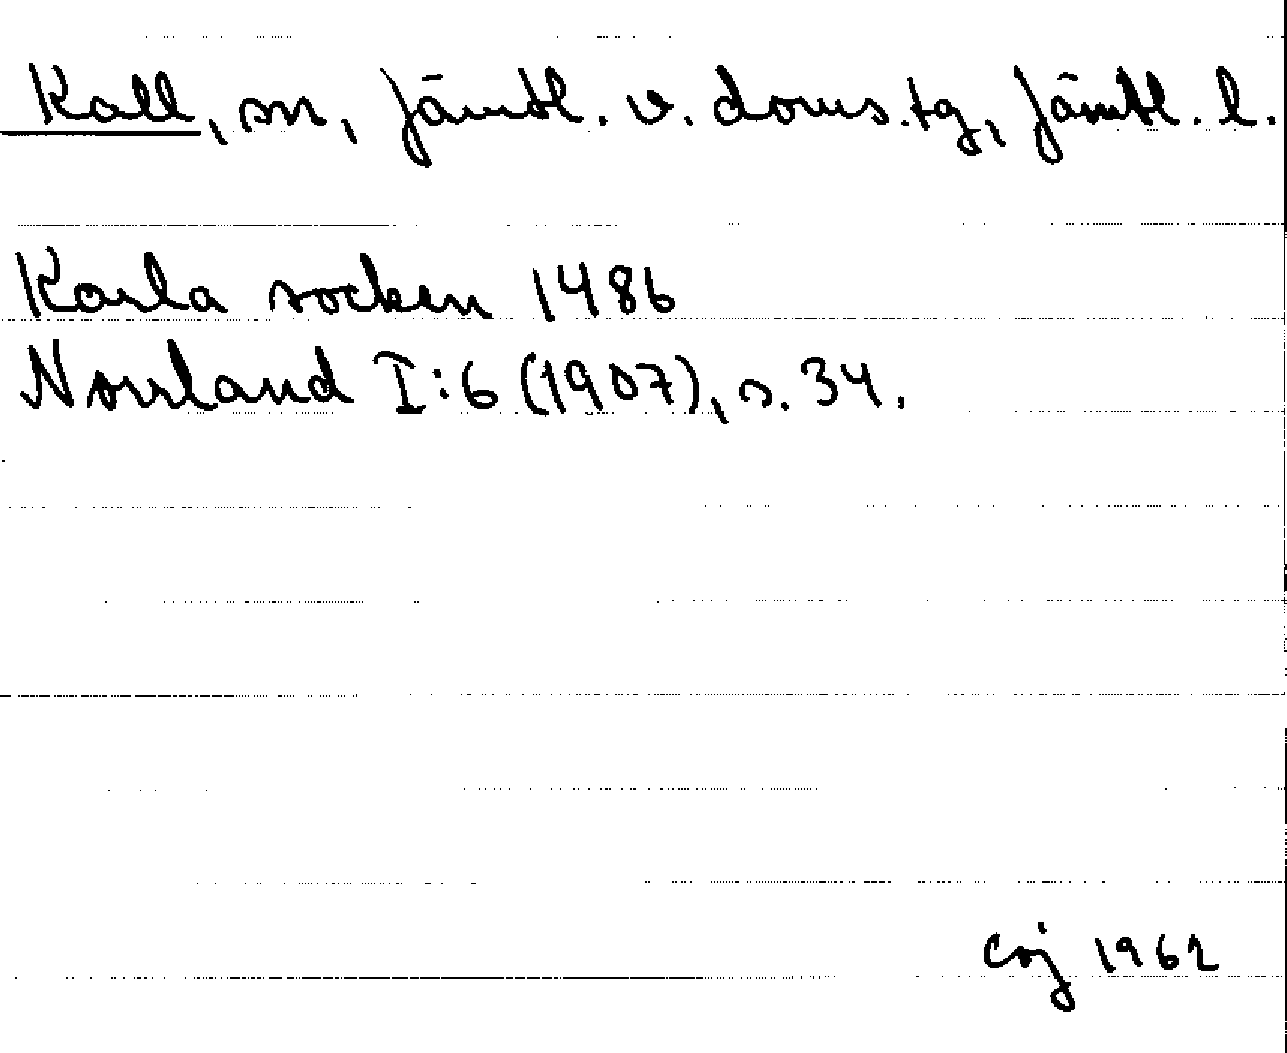 Kall, sn, Jämtl. v. doms.tg, Jämtl. l.
Karla socken 1486
Norrland I:6 (1907), s. 34.
Coj 1962